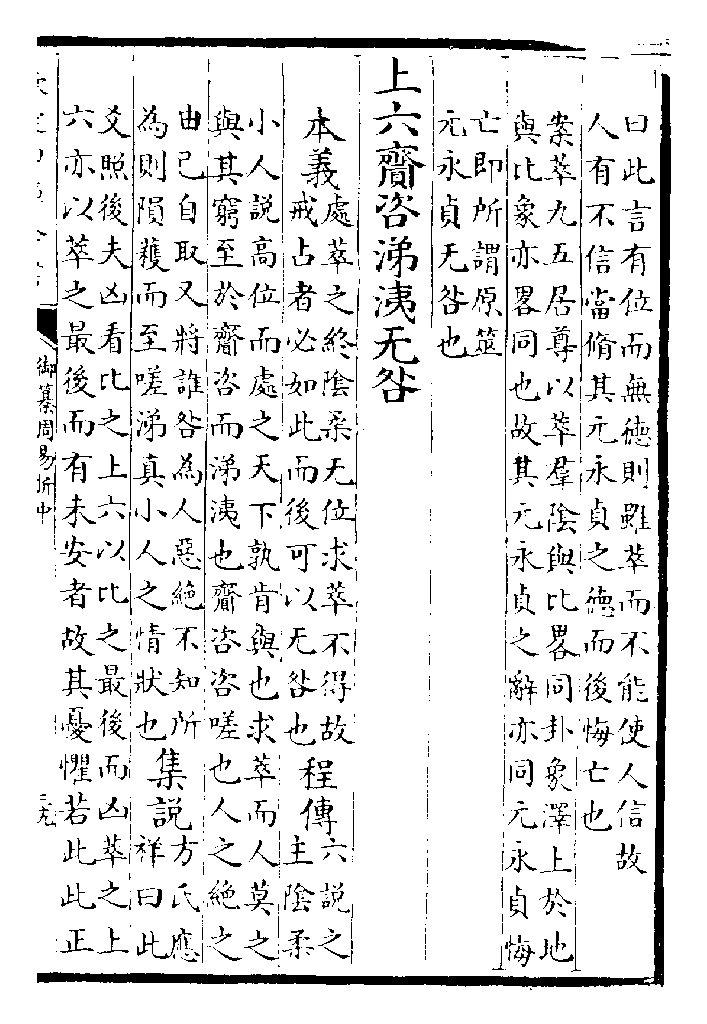 曰此言有位而無德則雖萃而不能使人信故
人有不信當脩其元永貞之德而後悔亡也
案萃九五居尊以萃羣陰與比畧同卦象澤上於地
與比象亦畧同也故其元永貞之辭亦同元永貞悔
亡即所謂原筮
元永貞无咎也
上六齎咨涕洟无咎
本義
處萃之終陰柔无位求萃不得故
戒占者必如此而後可以无咎也
程傳
六説之
主陰柔
小人説高位而處之天下孰肯與也求萃而人莫之
與其窮至於齎咨而涕洟也齎咨咨嗟也人之絶之
由己自取又將誰咎為人惡絶不知所
為則隕穫而至嗟涕真小人之情狀也
集説
方氏應
祥曰此
爻照後夫凶看比之上六以比之最後而凶萃之上
六亦以萃之最後而有未安者故其憂懼若此此正
御纂周易折中